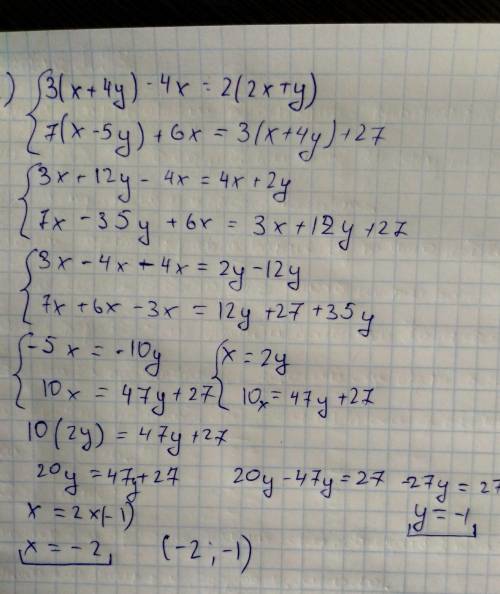 ) { 3(x+4y) - 4x = 2(2x+y)
7(x-5y) + 6x = 3(x+4y) + 27
{ 3x + 12y - 4x = 4x + 2y
7x - 35y + 6x = 3x + 12y + 27
{ 3x - 4x - 4x = 2y - 12y
7x + 6x - 3x = 12y + 27 + 35y
{ -5x = -10y { x = 2y
10x = 47y + 27 10x = 47y + 27
10(2y) = 47y + 27
20y = 47y + 27 20y - 47y = 27 -27y = 27
x = 2x(-1) y = -1
x = -2 (-2; -1)